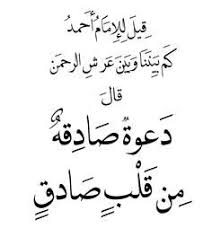 قِيلَ لِلإِمَامِ أَحمدُ
كَم بَيْنَنَا وَبَيْنَ عَرشِ الرحمنَ
قالَ
دَعوةٌ صَادِقةٌ
مِن قَلْبٍ صَادقٍ